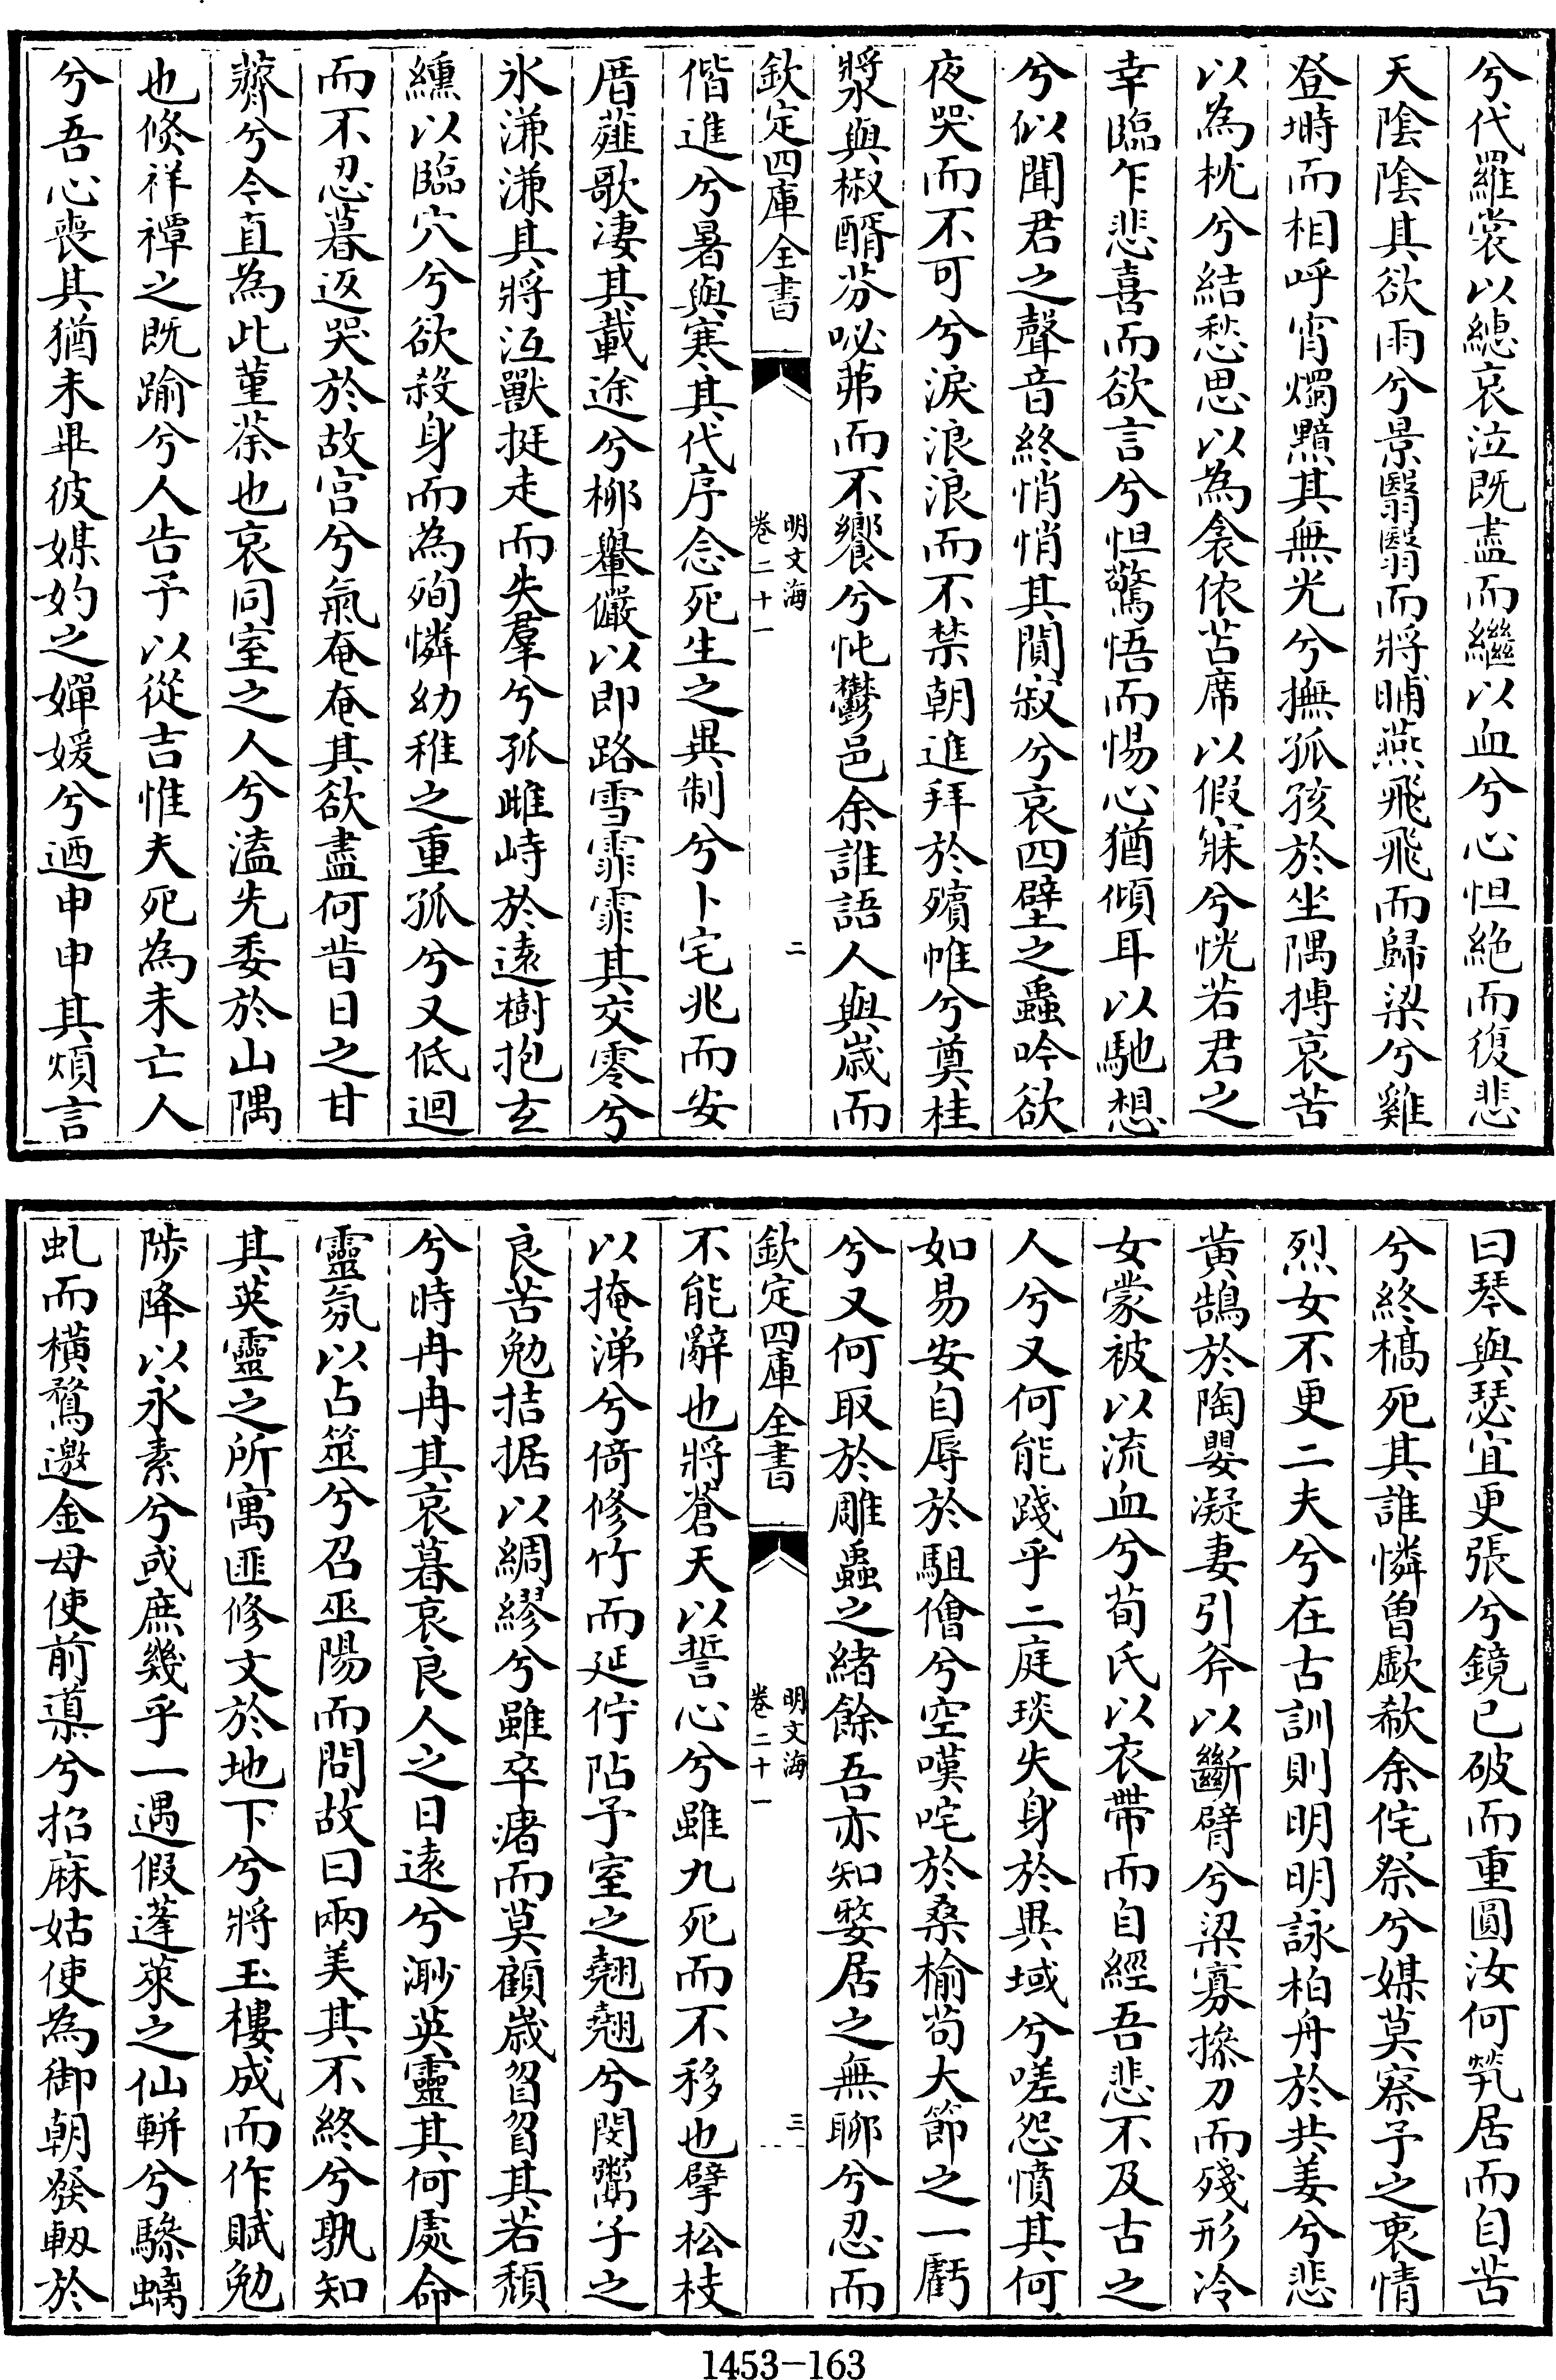 兮代羅裳以緦哀泣既盡而繼以血兮心怛絶而復悲
天隂隂其欲雨兮景翳翳而將晡燕飛飛而歸梁兮雞
登塒而相呼宵燭黯其無光兮撫孤孩於坐隅摶哀苦
以為枕兮結愁思以為衾依苫席以假寐兮恍若君之
幸臨乍悲喜而欲言兮怛驚悟而惕心猶傾耳以馳想
兮似聞君之聲音終悄悄其閴寂兮哀四壁之蟲吟欲
夜哭而不可兮淚浪浪而不禁朝進拜於殯帷兮奠桂
漿與椒醑芬咇茀而不饗兮忳鬱邑余誰語人與歲而
欽定四庫全書
明文海
卷二十一
二
偕進兮暑與寒其代序念死生之異制兮卜宅兆而安
厝薤歌凄其載途兮栁轝儼以即路雪霏霏其交零兮
氷溓溓其將沍獸挺走而失羣兮孤雌峙於遠樹抱玄
纁以臨穴兮欲殺身而為殉憐幼稚之重孤兮又低迴
而不忍暮返哭於故宫兮氣奄奄其欲盡何昔日之甘
薺兮今直為此菫荼也哀同室之人兮溘先委於山隅
也倐祥禫之既踰兮人告予以從吉惟夫死為未亡人
兮吾心喪其猶未畢彼媒妁之嬋媛兮迺申申其煩言
曰琴與瑟宜更張兮鏡已破而重圓汝何煢居而自苦
兮終槁死其誰憐曾歔欷余侘傺兮媒莫察予之衷情
烈女不更二夫兮在古訓則明明詠柏舟於共姜兮悲
黄鵠於陶嬰凝妻引斧以斷臂兮梁寡摻刀而殘形泠
女蒙被以流血兮荀氏以衣帶而自經吾悲不及古之
人兮又何能踐乎二庭琰失身於異域兮嗟怨憤其何
如易安自辱於駔儈兮空嘆咤於桑榆苟大節之一虧
兮又何取於雕蟲之緒餘吾亦知嫠居之無聊兮忍而
欽定四庫全書
明文海
卷二十一
三
不能辭也將蒼天以誓心兮雖九死而不移也擥松枝
以掩涕兮倚修竹而延佇阽予室之翹翹兮閔鬻子之
良苦勉拮据以綢繆兮雖卒瘏而莫顧歲曶曶其若頽
兮時冉冉其哀暮哀良人之日遠兮渺英靈其何處命
靈氛以占筮兮召巫陽而問故曰兩美其不終兮孰知
其英靈之所寓匪修文於地下兮將玉樓成而作賦勉
陟降以永素兮或庶幾乎一遇假蓬萊之仙軿兮驂螭
虬而横騖邀金母使前導兮招麻姑使為御朝發軔於
1453-163